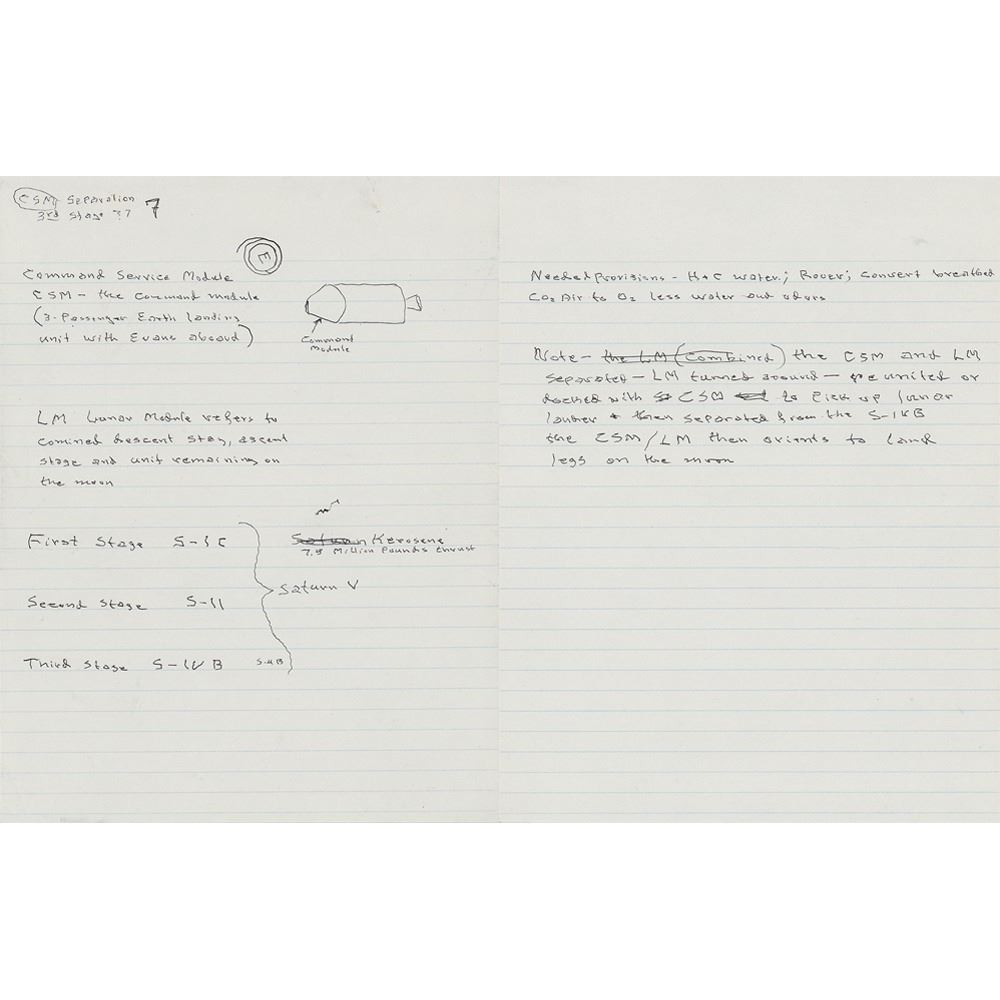 CSM Separation
3rd Stage ?? 7
E
Command Service Module
CSM - the Command module
(3-Passenger Earth landing
unit with Evans aboard)
Command
Module
LM Lunar Module refers to
comined descent stay, ascent
stage and unit remaining on
the moon
First Stage S-1C
Saturn Kerosene
7.5 Million Pounds thrust
Saturn V
Second Stage S-11
Third Stage S-IVB S-4B
Needed Provisions - H+C water; Rover; convert breathed
CO2 Air to O2 less water and odors
Note - the LM (Combined) the CSM and LM
separated - LM turned around - reunited or
docked with CSM to Pick up lunar
lander + then separated from the S-IVB
the CSM/LM then orients to land
legs on the moon